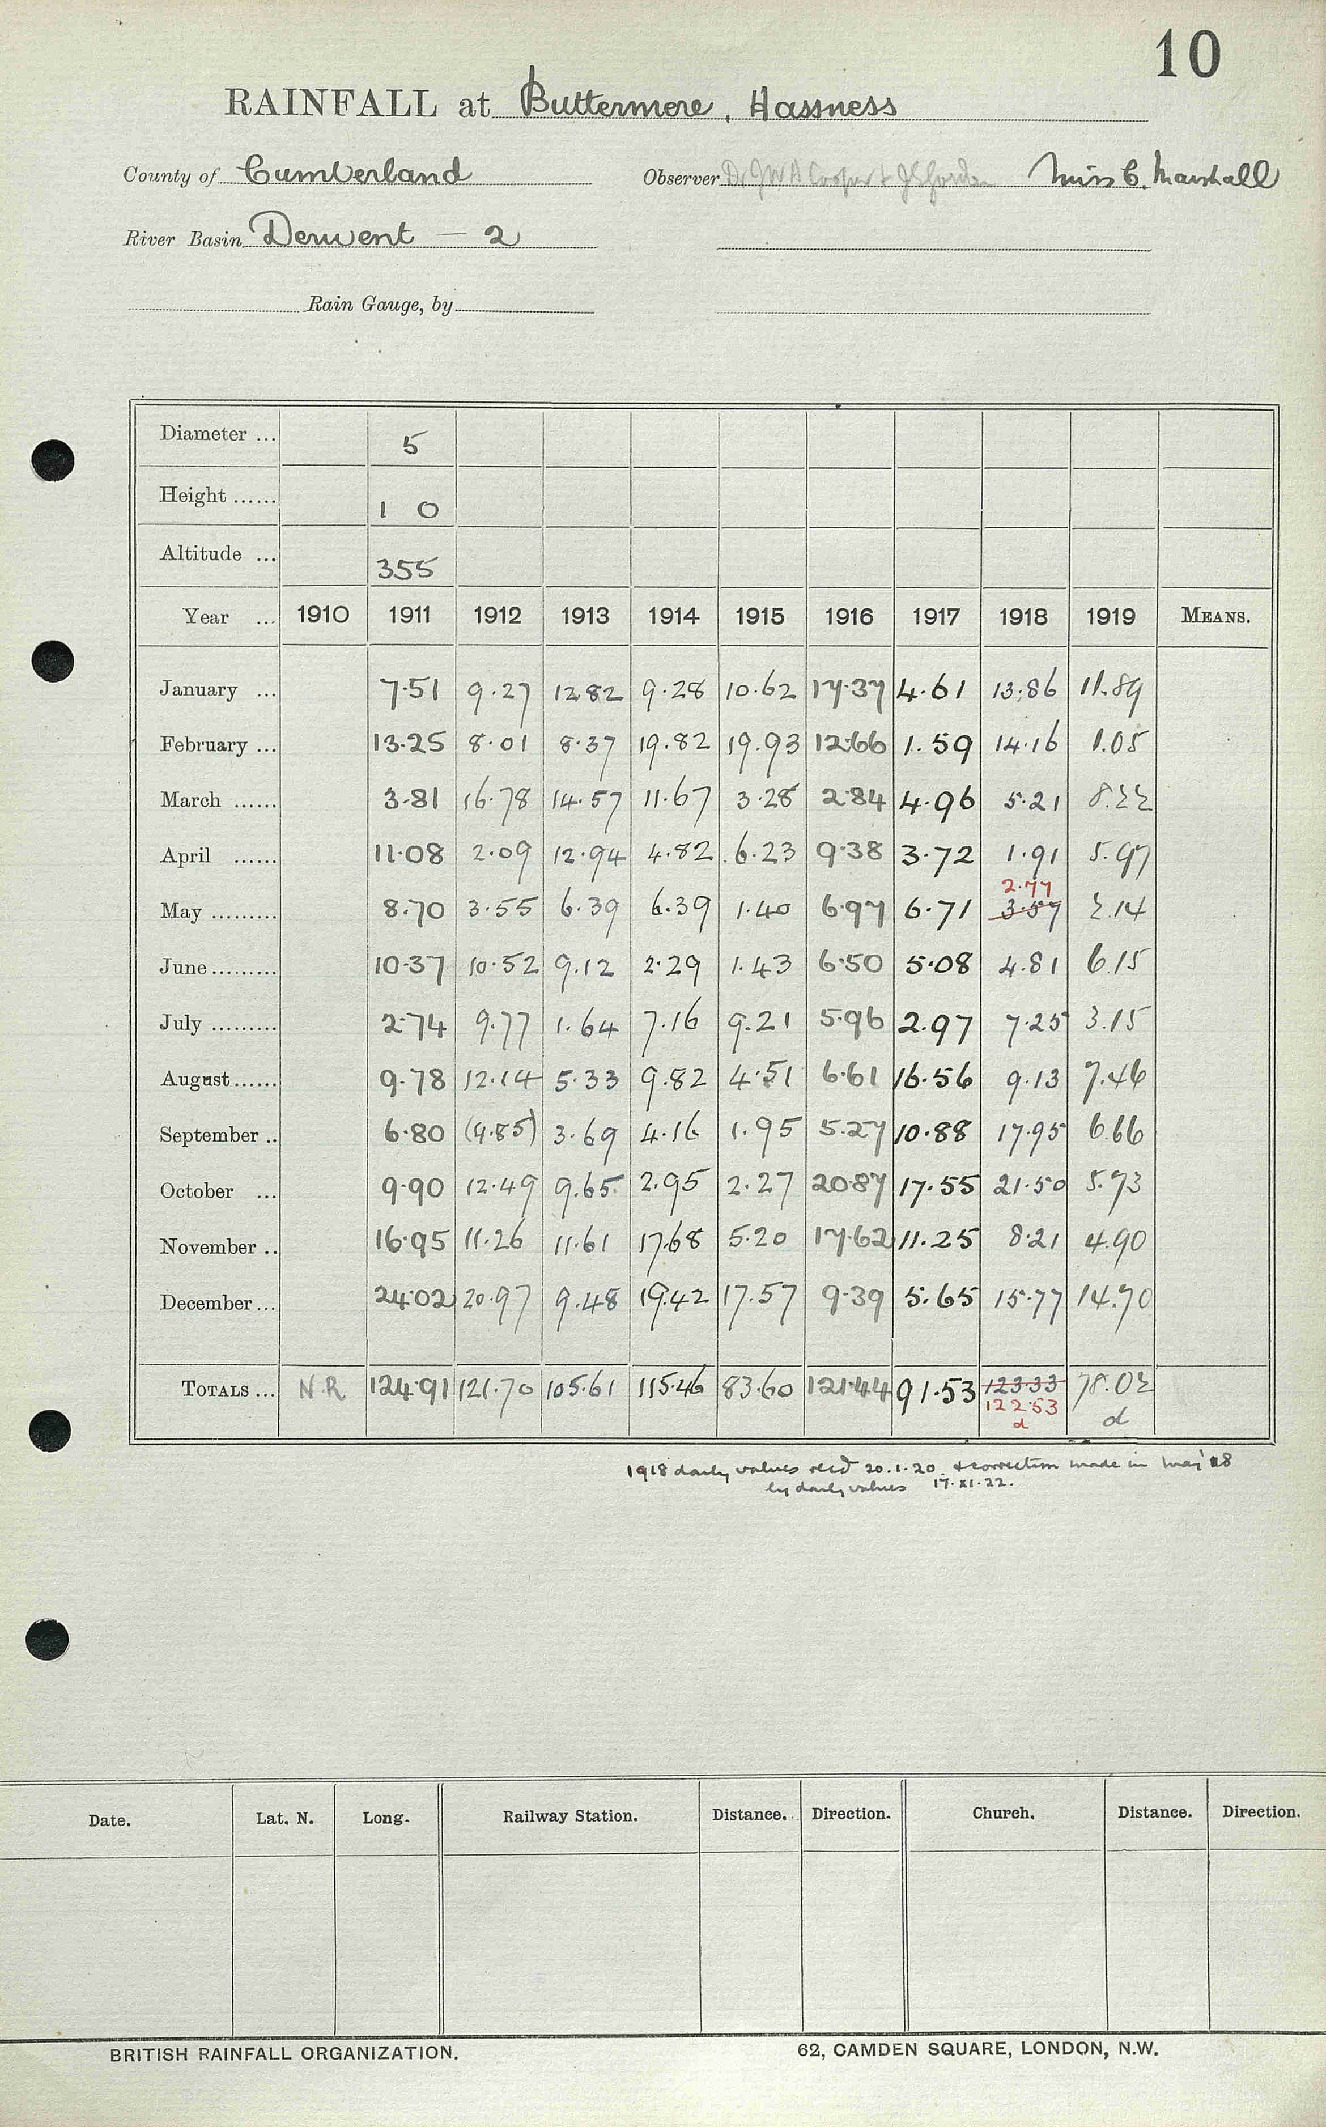 10
RAINFALL at Buttermere, Hassness
County of Cumberland Observer Dr J W A Cooper + J S Gordon Miss C. Marshall
River Basin Derwent — 2
Rain Gauge, by
Diameter ... 5
Height ...... 1 0
Altitude ... 355
Year ... 1910 1911 1912 1913 1914 1915 1916 1917 1918 1919 MEANS.
January ... 7.51 9.27 12.82 9.28 10.62 17.37 4.61 13.86 11.89
February ... 13.25 8.01 8.37 19.82 19.93 12.66 1.59 14.16 1.05
March ...... 3.81 16.78 14.57 11.67 3.28 2.84 4.96 5.21 8.22
April ...... 11.08 2.09 12.94 4.82 6.23 9.38 3.72 1.91 5.97
2.77
May ......... 8.70 3.55 6.39 6.39 1.40 6.97 6.71 3.57 2.14
June ......... 10.37 10.52 9.12 2.29 1.43 6.50 5.08 4.81 6.15
July ......... 2.74 9.77 1.64 7.16 9.21 5.96 2.97 7.25 3.15
August ...... 9.78 12.14 5.33 9.82 4.51 6.61 16.56 9.13 7.46
September .. 6.80 (4.85) 3.69 4.16 1.95 5.27 10.88 17.95 6.66
October ... 9.90 12.49 9.65 2.95 2.27 20.87 17.55 21.50 5.73
November .. 16.95 11.26 11.61 17.68 5.20 17.62 11.25 8.21 4.90
December ... 24.02 20.97 9.48 19.42 17.57 9.39 5.65 15.77 14.70
TOTALS ... N.R. 124.91 121.70 105.61 115.46 83.60 121.44 91.53 123.33 78.02
122.53 d
d
1918 daily values recd 20.1.20 & correction made in May '18
by daily values 17.XI.22.
Date. Lat. N. Long. Railway Station. Distance. Direction. Church. Distance. Direction.
BRITISH RAINFALL ORGANIZATION. 62, CAMDEN SQUARE, LONDON, N.W.